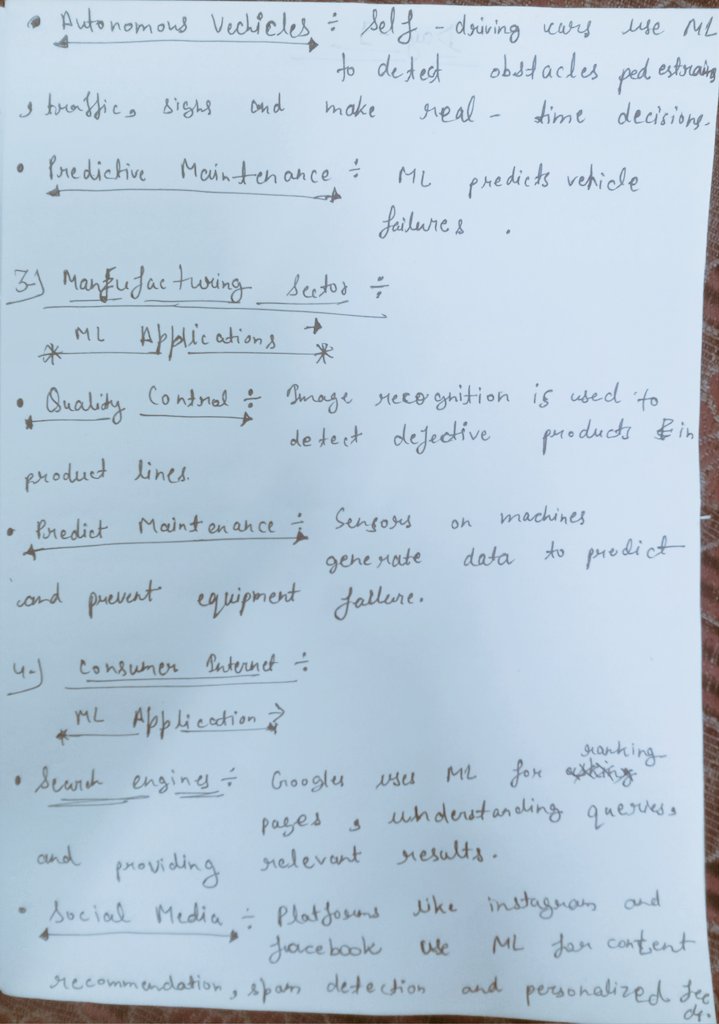 • Autonomous Vechicles ÷ Self - driving cars use ML
to detect obstacles pedestrains
, traffic, signs and make real - time decisions.
• Predictive Maintenance ÷ ML predicts vehicle
failures .
3-) Manufacturing Sector ÷
ML Applications →
• Quality Control ÷ Image recognition is used to
detect defective products in
product lines.
• Predict Maintenance ÷ Sensors on machines
generate data to predict
and prevent equipment failure.
4-) Consumer Internet ÷
ML Application →
• Search engines ÷ Googles uses ML for ranking
pages , understanding queries,
and providing relevant results.
• Social Media ÷ Platforms like instagram and
facebook use ML for content
recommendation, spam detection and personalized feeds.